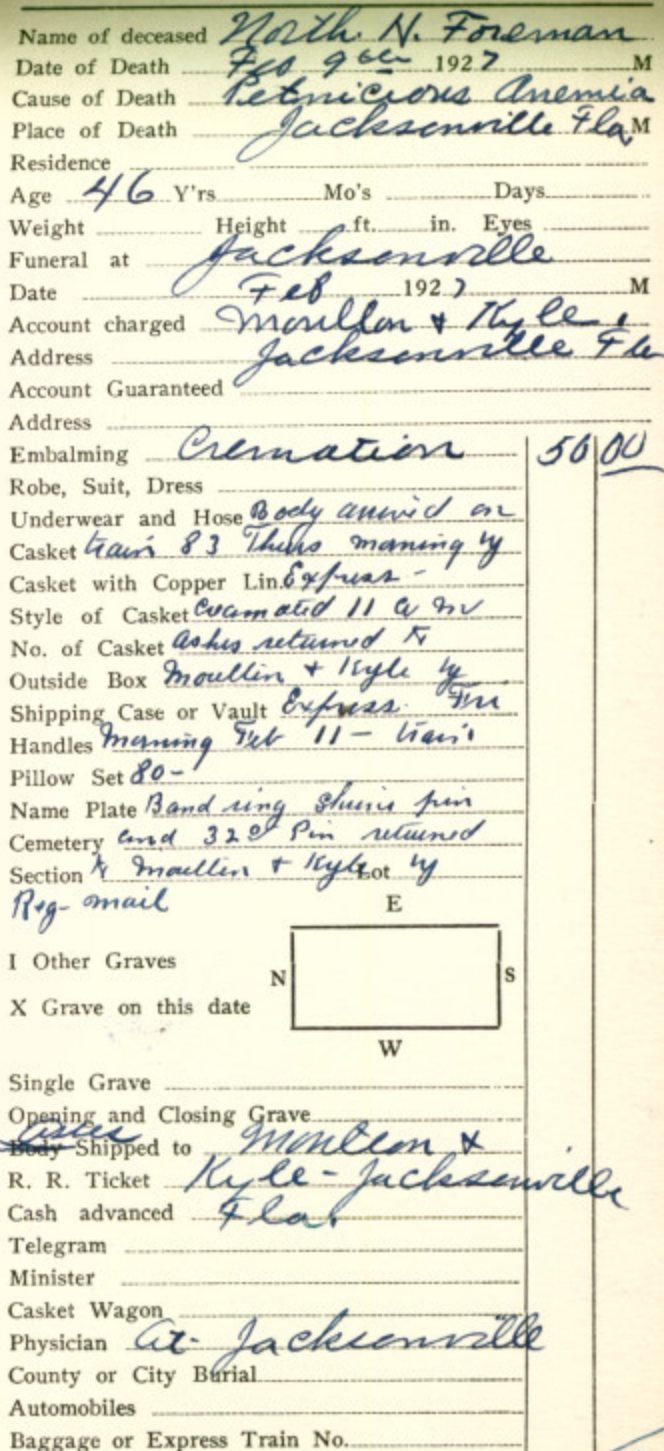 Name of deceased North. N. Foreman
Date of Death Feb 9th 1927 M
Cause of Death Petnicious Anemia
Place of Death Jacksonville Fla M
Residence
Age 46 Y'rs Mo's Days
Weight Height ft. in. Eyes
Funeral at Jacksonville
Date Feb 1927 M
Account charged Moullon & Kyle.
Address Jacksonville Fla
Account Guaranteed
Address
Embalming Cremation 50 00
Robe, Suit, Dress
Underwear and Hose Body arrived on
Casket train 83 Thurs morning by
Casket with Copper Lin. Express -
Style of Casket Creamated 11 a m
No. of Casket Ashes returned to
Outside Box Moullin & Kyle by
Shipping Case or Vault Express. Fri
Handles Morning Feb 11 - train
Pillow Set 80 -
Name Plate Band ring Shrine pin
Cemetery and 32° Pin returned
Section to Moullin & Kyle Lot by
Reg - mail
E
I Other Graves
N S
X Grave on this date
W
Single Grave
Opening and Closing Grave
Ashes
Body Shipped to Moulton &
R. R. Ticket Kyle - Jacksonville
Cash advanced Fla.
Telegram
Minister
Casket Wagon
Physician At - Jacksonville
County or City Burial
Automobiles
Baggage or Express Train No.